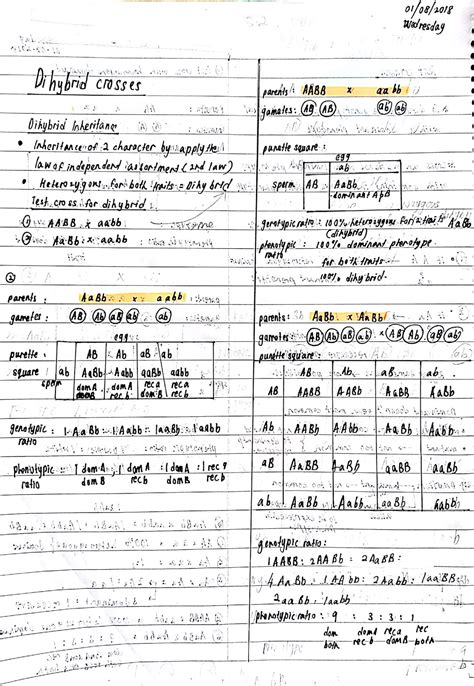 01/08/2018
Wednesday
Dihybrid crosses
Dihybrid Inheritance
• Inheritance of 2 character by applying
law of independent assortment (2nd law)
• Heterozygous for both traits = Dihybrid
Test cross for dihybrid.
① AABB x aabb
② AaBb x aabb
②
parents : AaBb x aabb
gametes : AB Ab aB ab , ab
eggs
punette square : AB Ab aB ab
sperm ab AaBb Aabb aaBb aabb
domA domA reca reca
domB rec b domB rec b
genotypic ratio : 1 AaBb : 1 Aabb : 1 aaBb : 1 aabb
phenotypic ratio = 1 domA domB : 1 domA rec b : 1 domA domB : 1 rec
rec b
parents : AABB x aabb
gametes : AB AB ab ab
punette square :
egg
ab
sperm AB AaBb
genotypic ratio : 100% heterozygous for both traits AaBb
(dihybrid)
phenotypic ratio : 100% dominant phenotype
for both traits
100% dihybrid.
parents : AaBb x AaBb
gametes : AB Ab aB ab AB Ab aB ab
punette square :
AB Ab aB ab
AB AABB AABb AaBB AaBb
Ab AABb AAbb AaBb Aabb
aB AaBB AaBb aaBB aaBb
ab AaBb Aabb aaBb aabb
genotypic ratio :
1AABB : 2AABb : 2AaBB :
4AaBb : 1AAbb : 2Aabb : 1aaBB
2aaBb : 1aabb
phenotypic ratio : 9 : 3 : 3 : 1
dom domA rec a rec
both rec b domB both